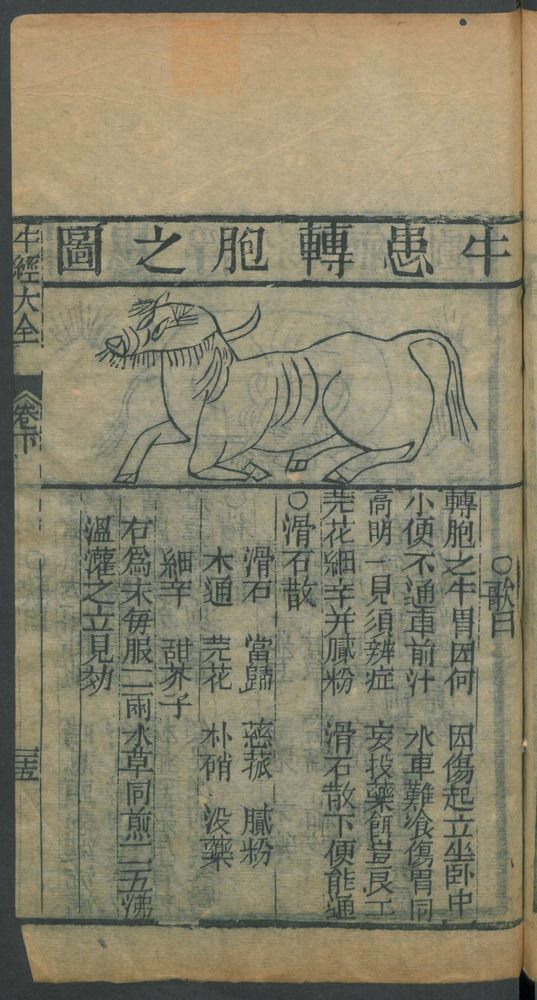 牛患轉胞之圖
○歌曰
轉胞之牛胃因何 因傷起立坐卧中
小便不通車前汁 水車難飡傷胃同
高明一見須辨症 妄投藥餌豈良工
芫花細辛并膩粉 滑石散下便能通
○滑石散
滑石 當歸 蔥菰 膩粉
木通 芫花 朴硝 没藥
細辛 甜芥子
右為末毎服二兩水草同煎二五沸
溫灌之立見効
牛經大全 卷下 三五